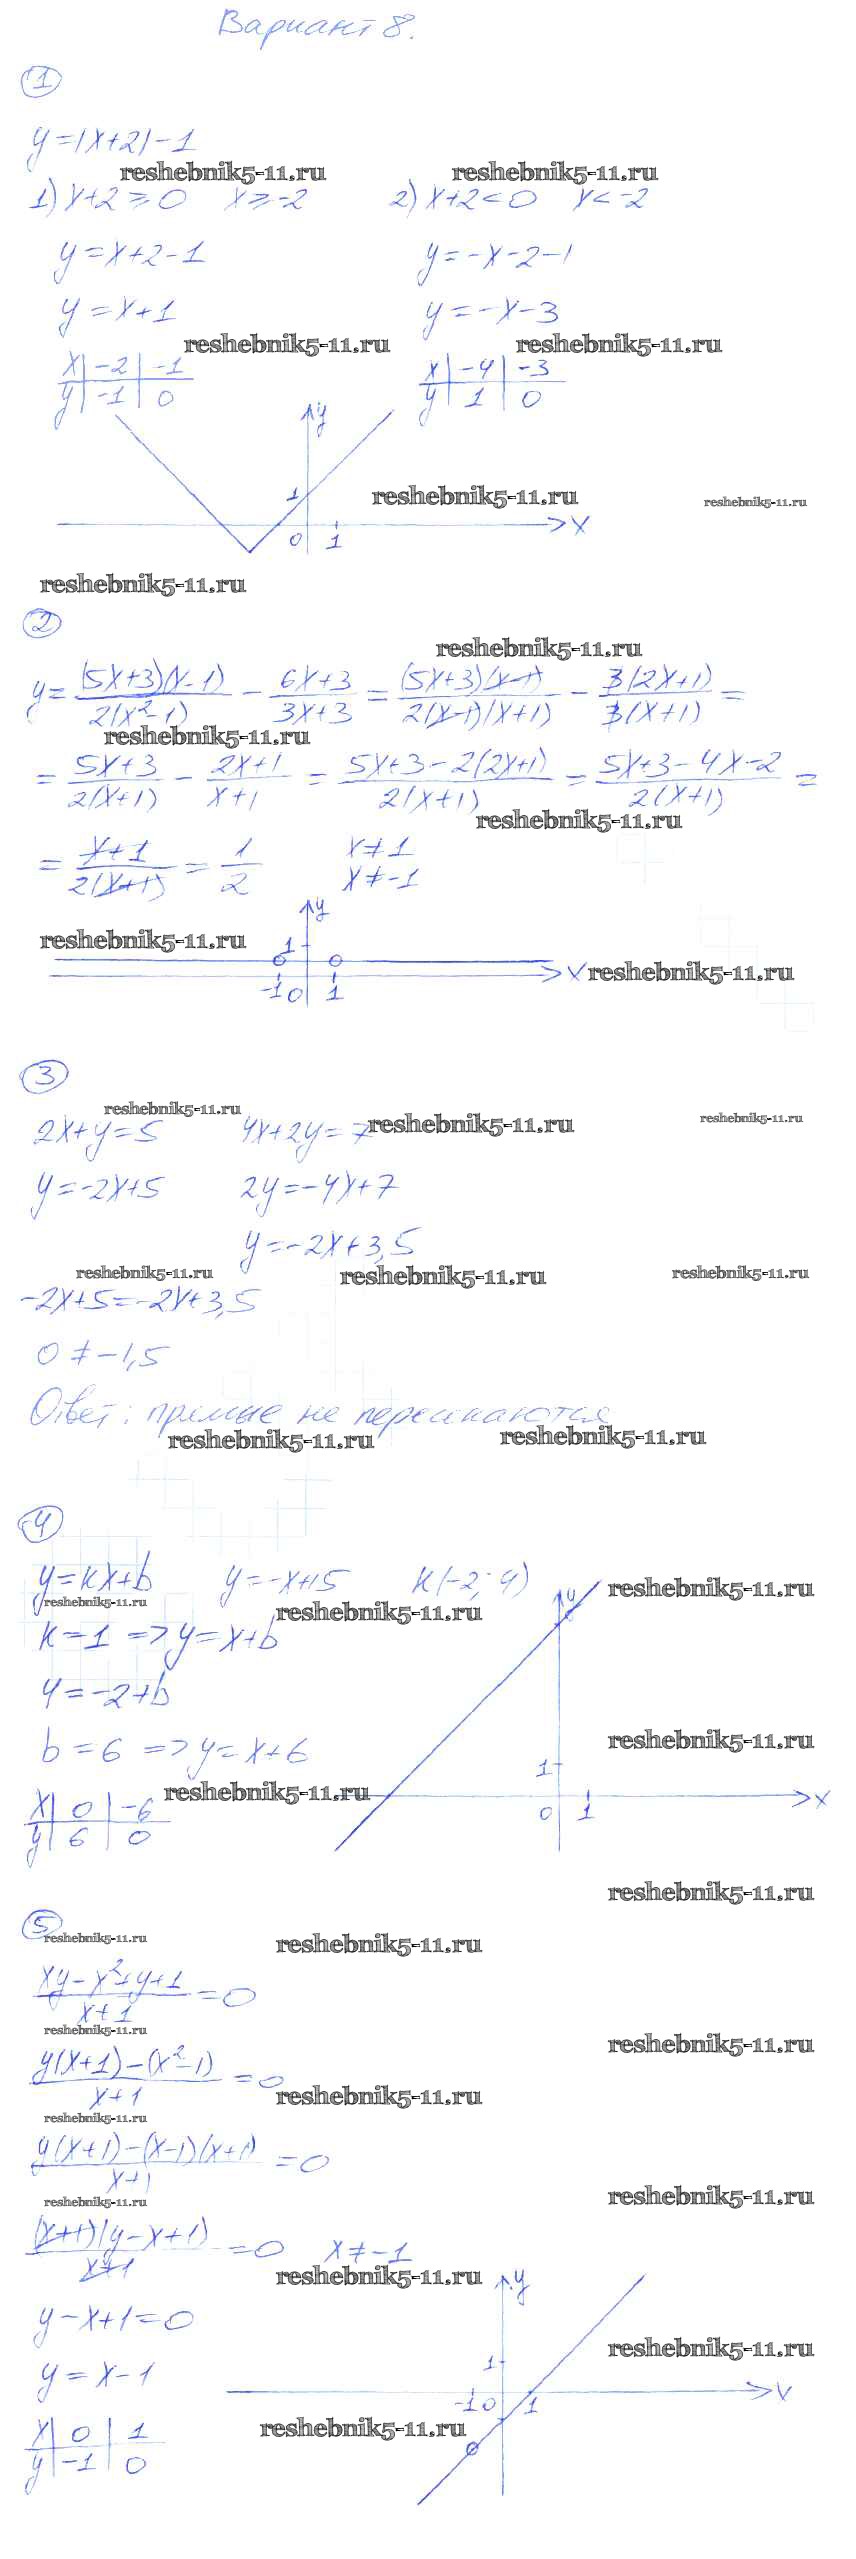 Вариант 8.
1
y=|x+2|-1
reshebnik5-11.ru reshebnik5-11.ru
1) x+2≥0 x≥-2 2) x+2<0 x<-2
y=x+2-1 y=-x-2-1
y=x+1 y=-x-3
reshebnik5-11.ru reshebnik5-11.ru
x | -2 | -1 x | -4 | -3
y | -1 | 0 y | 1 | 0
y
1 reshebnik5-11.ru reshebnik5-11.ru
0 1 x
reshebnik5-11.ru
2
reshebnik5-11.ru
y = (5x+3)(x-1) / 2(x²-1) - 6x+3 / 3x+3 = (5x+3)(x-1) / 2(x-1)(x+1) - 3(2x+1) / 3(x+1) =
reshebnik5-11.ru
= 5x+3 / 2(x+1) - 2x+1 / x+1 = 5x+3-2(2x+1) / 2(x+1) = 5x+3-4x-2 / 2(x+1) =
reshebnik5-11.ru
= x+1 / 2(x+1) = 1/2 x≠1
x≠-1
y
reshebnik5-11.ru 1
x reshebnik5-11.ru
-1 0 1
3
reshebnik5-11.ru reshebnik5-11.ru reshebnik5-11.ru
2x+y=5 4x+2y=7
y=-2x+5 2y=-4x+7
y=-2x+3,5
reshebnik5-11.ru reshebnik5-11.ru reshebnik5-11.ru
-2x+5=-2x+3,5
0≠-1,5
Ответ: прямые не пересекаются
reshebnik5-11.ru reshebnik5-11.ru
4
y=kx+b y=-x+15 K(-2; 4)
y reshebnik5-11.ru
reshebnik5-11.ru reshebnik5-11.ru
k=1 => y=x+b
4=-2+b
b=6 => y=x+6
reshebnik5-11.ru
1
reshebnik5-11.ru
x | 0 | -6
y | 6 | 0
0 1 x
reshebnik5-11.ru
5
reshebnik5-11.ru reshebnik5-11.ru
xy-x²+y+1 / x+1 = 0
reshebnik5-11.ru reshebnik5-11.ru
y(x+1)-(x²-1) / x+1 = 0
reshebnik5-11.ru
reshebnik5-11.ru
y(x+1)-(x-1)(x+1) / x+1 = 0
reshebnik5-11.ru reshebnik5-11.ru
(x+1)(y-x+1) / x+1 = 0 x≠-1
reshebnik5-11.ru y
y-x+1=0
reshebnik5-11.ru
y=x-1
1
-1 0 1 x
reshebnik5-11.ru
x | 0 | 1
y | -1 | 0